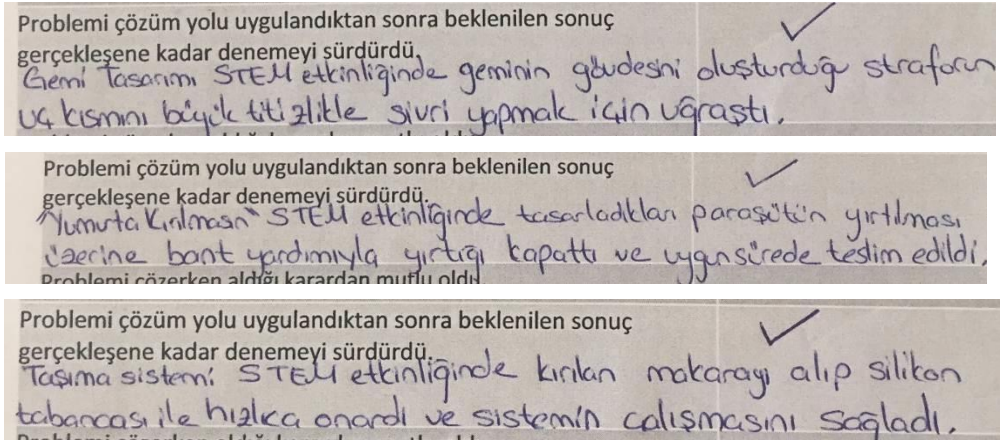 Problemi çözüm yolu uygulandıktan sonra beklenilen sonuç
gerçekleşene kadar denemeyi sürdürdü.
Gemi Tasarımı STEM etkinliğinde geminin gövdesini oluşturduğu straforun
uç kısmını büyük titizlikle sivri yapmak için uğraştı.
Problemi çözüm yolu uygulandıktan sonra beklenilen sonuç
gerçekleşene kadar denemeyi sürdürdü.
"Yumurta Kırılmasın" STEM etkinliğinde tasarladıkları paraşütün yırtılması
üzerine bant yardımıyla yırtığı kapattı ve uygun sürede teslim edildi.
Problemi çözerken aldığı karardan mutlu oldu.
Problemi çözüm yolu uygulandıktan sonra beklenilen sonuç
gerçekleşene kadar denemeyi sürdürdü.
Taşıma sistemi STEM etkinliğinde kırılan makarayı alıp silikon
tabancası ile hızlıca onardı ve sistemin çalışmasını sağladı.